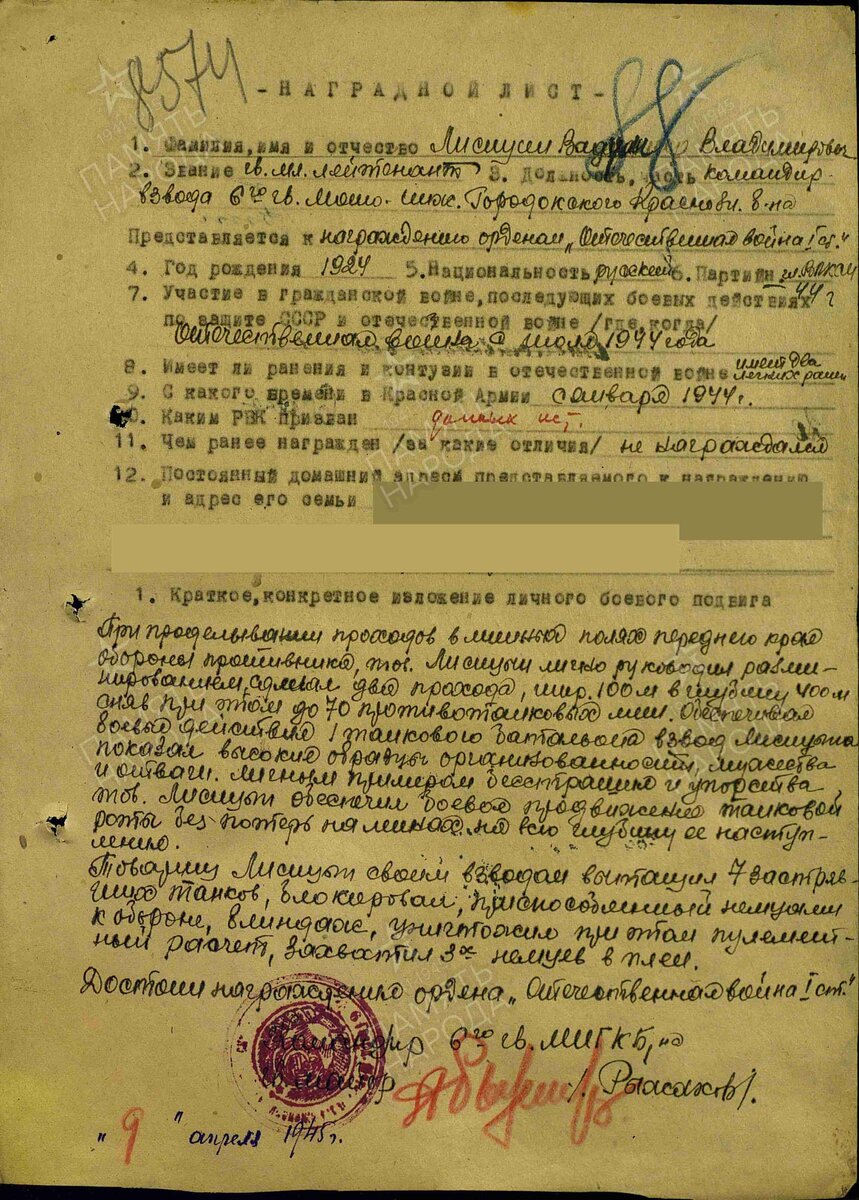 8574
88
- НАГРАДНОЙ ЛИСТ -
1. Фамилия,имя и отчество Лисицын Вадим Владимирович
2. Звание гв. мл. лейтенант 3. Должность, часть командир
взвода 6го гв. Мото-инж. Городокского Краснозн. б-на
Представляется к награждению орденом „Отечественная война I ст."
4. Год рождения 1924 5.Национальность русский 6. Партийн.
44 г
7. Участие в гражданской войне,последующих боевых действиях
по защите СССР и отечественной войне /где,когда/
Отечественная война с июля 1944 года
8. Имеет ли ранения и контузии в отечественной войне имеет два легких ранен.
9. С какого времени в Красной Армии с января 1944 г.
10. Каким РВК призван данных нет.
11. Чем ранее награжден /за какие отличия/ не награждался
12. Постоянный домашний адресм представляемого к награждению
и адрес его семьи
1. Краткое,конкретное изложение личного боевого подвига
При проделывании проходов в минных полях переднего края
обороны противника, тов. Лисицын лично руководил разми-
нированием, сделал два прохода, шир. 100 м в глубину 400 м
сняв при этом до 70 противотанковых мин. Обеспечивая
боевые действия 1 танкового батальона взвод Лисицына
показал высокие образцы организованности, мужества
и отваги. Личным примером бесстрашия и упорства
тов. Лисицын обеспечил боевое продвижение танковой
роты без потерь на минах на всю глубину ее наступ-
ления.
Товарищ Лисицын своим взводом вытащил 7 застряв-
ших танков, блокировал, приспособленный немцами
к обороне, блиндаж, уничтожив при этом пулемет-
ный расчет, захватил 3ох немцев в плен.
Достоин награждения ордена „Отечественная война I ст."
Командир 6го гв. МИГКБ,на
гв. майор /Рысаков/.
„9" апреля 1945 г.